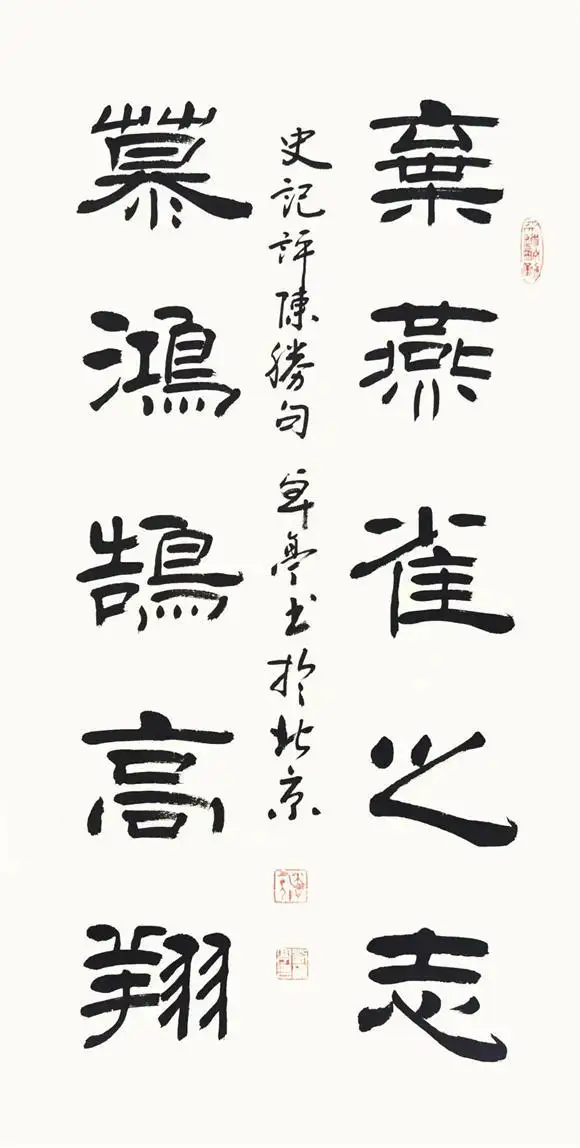 棄燕雀之志
慕鴻鵠高翔
史記評陳勝句 亭书於北京